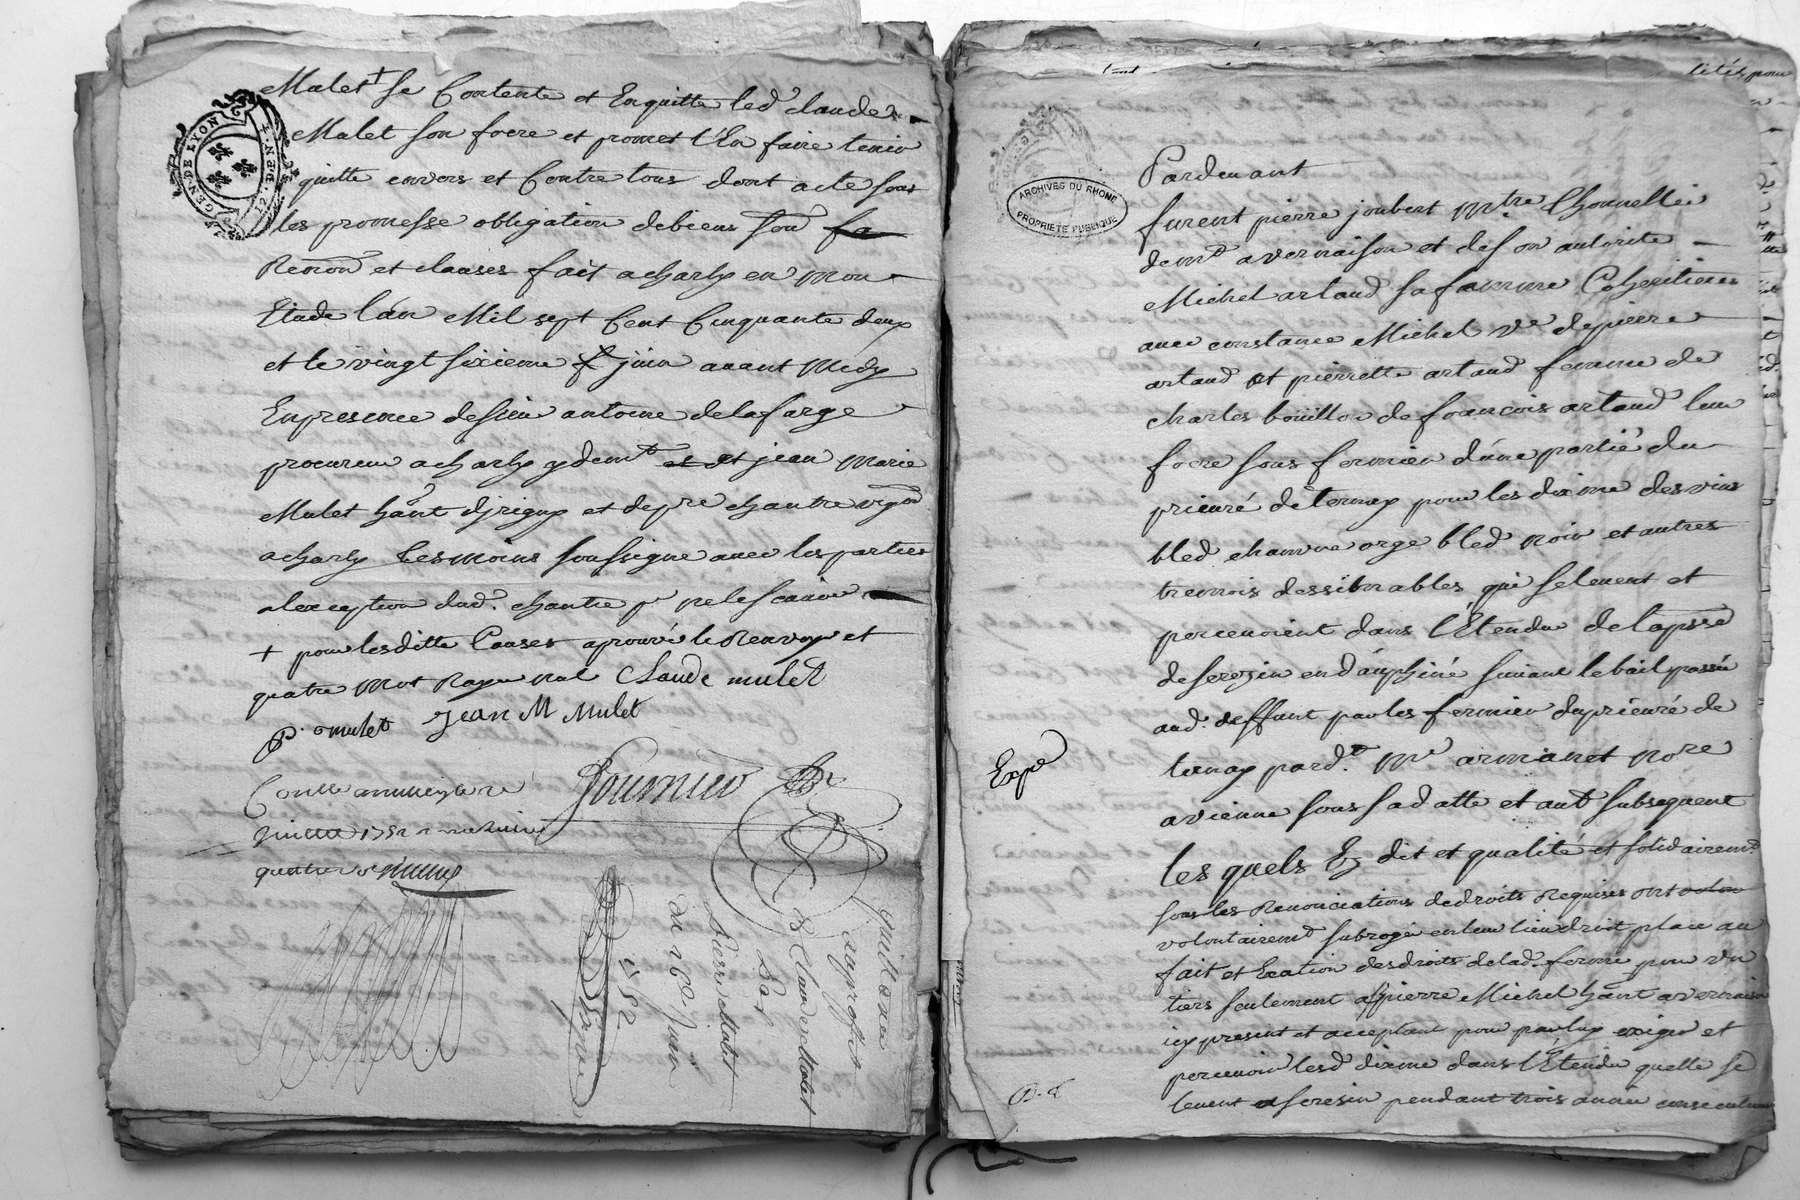 Mulet + Se Contente et Enquitte led. claude
Mulet son frere et promet l'En faire tenir
quitte envers et Contre tous dont acte sous
les promesse obligation de biens soud
Renon et clauses fait a charly en mon
Etude l'an Mil sept Cent Cinquante deux
et le vingt sixieme juin avant Midy
En presence de sieur antoine delafarge
procureur a charly y demt et jean Marie
Mulet hant d'jrigny et de pre chantre vign
a charly tesmoins soussigne avec les parties
a l'exception dud. chantre pr ne le scavoir
+ pour lesditte Causes aprouvé le Renvoye et
quatre Mot Rayé nul Claude mulet
P. mulet Jean M Mulet
Fournier
GEN. DE LYON
DEN.
quittance
au proffit
de Claude Mulet
Par
Pierre Mulet
du 26 Juin
1752
ARCHIVES DU RHONE
PROPRIETE PUBLIQUE
Pardevant
furent pierre joubert Mtre Chonnellier
demt a vernaison et de son autorite
Michel artaud sa famme Coheritieres
avec constance Michel ve de pierre
artaud et pierrette artaud femme de
charles boüillon de françois artaud leur
frere sous fermier d'une partié du
prieuré de ternay pour les dixme des vins
bled chanvre orge bled noir et autres
tremois dessimables qui se levent et
percevoient dans l'Etendu de la psse
de serezin en dauphiné suivant le bail passé
aud. deffunt par les fermier du prieuré de
ternay pard.t Me armanet nore
a vienne sous sa datte et aut subsequent
les quels Ez dit et qualité et solidairemt
sous les Renonciations de droits Requises ont
volontairemt subrogé en leur lieu droit place au
fait et Exation des droits de lad. ferme pour un
tiers seulement a pierre Michel hant a vernaison
icy present et acceptant pour par luy exiger et
percevoir lesd dixme dans l'Etendu quelle se
levent a seresin pendant trois année consecutive
Expé